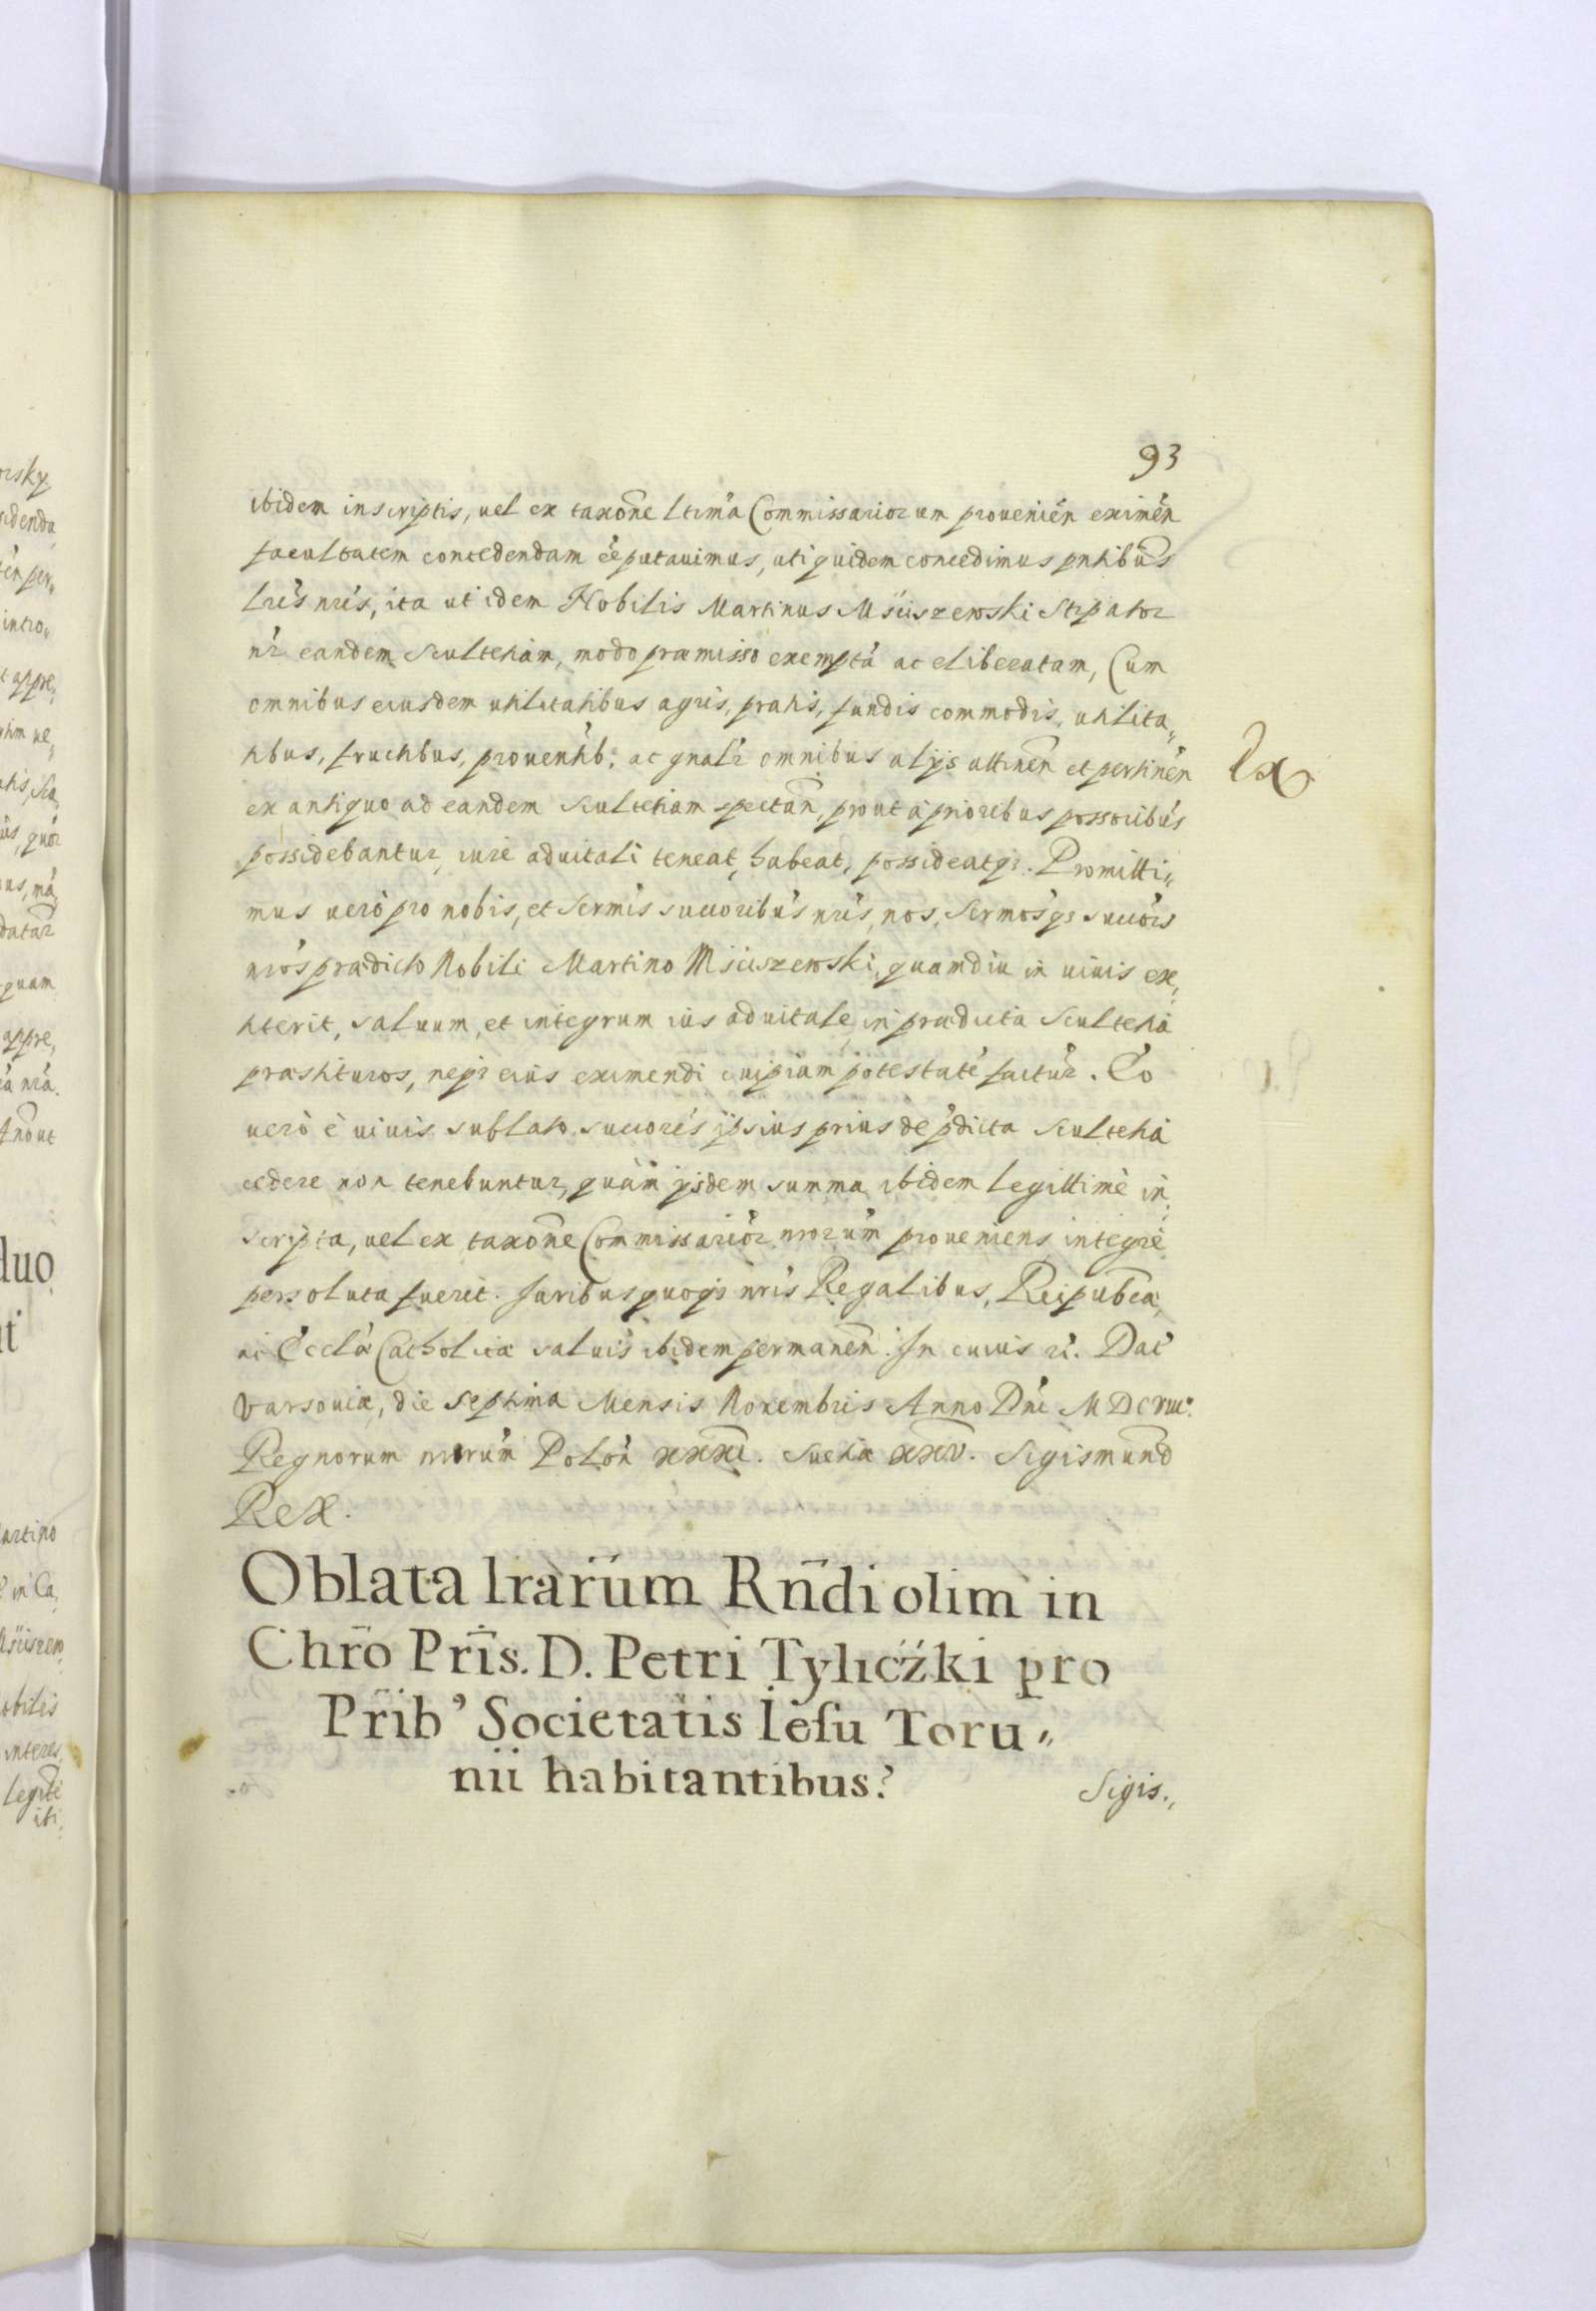 93
ibidem inscriptis, uel ex taxõne Ltimã Commissariorum prouenién eximén
facultatem concedendam éé putauimus, uti quidem concedimus pntibus
Lrís nrís, ita ut idem Nobilis Martinus Msciszewski Stipator
nr eandem Scultetiam, modo præmisso exemptã ac eliberatam, Cum
omnibus eiusdem utilitatibus agris, pratis, fundis commodis, utilita„
tibus, fructibus, prouentib; ac gnalr omnibus alijs attinen et pertinén
ex antiquo ad eandem Scultetiam spectan, prout a prioribus possoribus
possidebantur, iure aduitali teneat, habeat, possideatq3. Promitti„
mus uerò pro nobis, et Sermis succoribus nris, nos, Sermosq3 succórs
nros prædicto Nobili Martino Msciszewski, quamdiu in uiuis ex„
titerit, saluum, et integrum ius aduitale, in prædicta Scultetia
præstituros, neq3 eius eximendi cuipiam potestaté factúr. Eo
uerò è uiuis sublato succorés ipsius prius de pdicta Scultetiá
cedere non tenebuntur, quàm ijsdem summa ibidem legittimè in„
scripta, uel ex taxõne Commissariór nrorum proueniens integrè
persoluta fuerit. Iuribus quoq3 nris Regalibus, Reipubcæ,
ac Ecclæ Catholicæ saluis ibidem permanén. In cuius ri. Dat
Varsouiæ, die septima Mensis Nouembris Anno Dni M DCXVIII.
Regnorum nrorum Polón xxxi. Sueciæ xxv. Sigismund
Rex.
Oblata lrarūm Rndi olim in
Chrō Prīs. D. Petri Tylićźki pro
Prib’ Societatis Iesu Toru„
nii habitantibus.
Sigis„